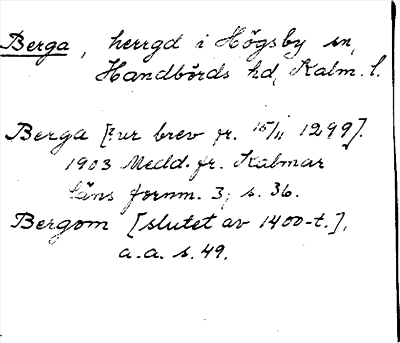 Berga, herrgd i Högsby sn,
Handbörds hd, Kalm. l.
Berga [: ur brev fr. 15/11 1299].
1903 Medd. fr. Kalmar
läns fornm. 3, s. 36.
Bergom [slutet av 1400-t.],
a.a. s. 49.